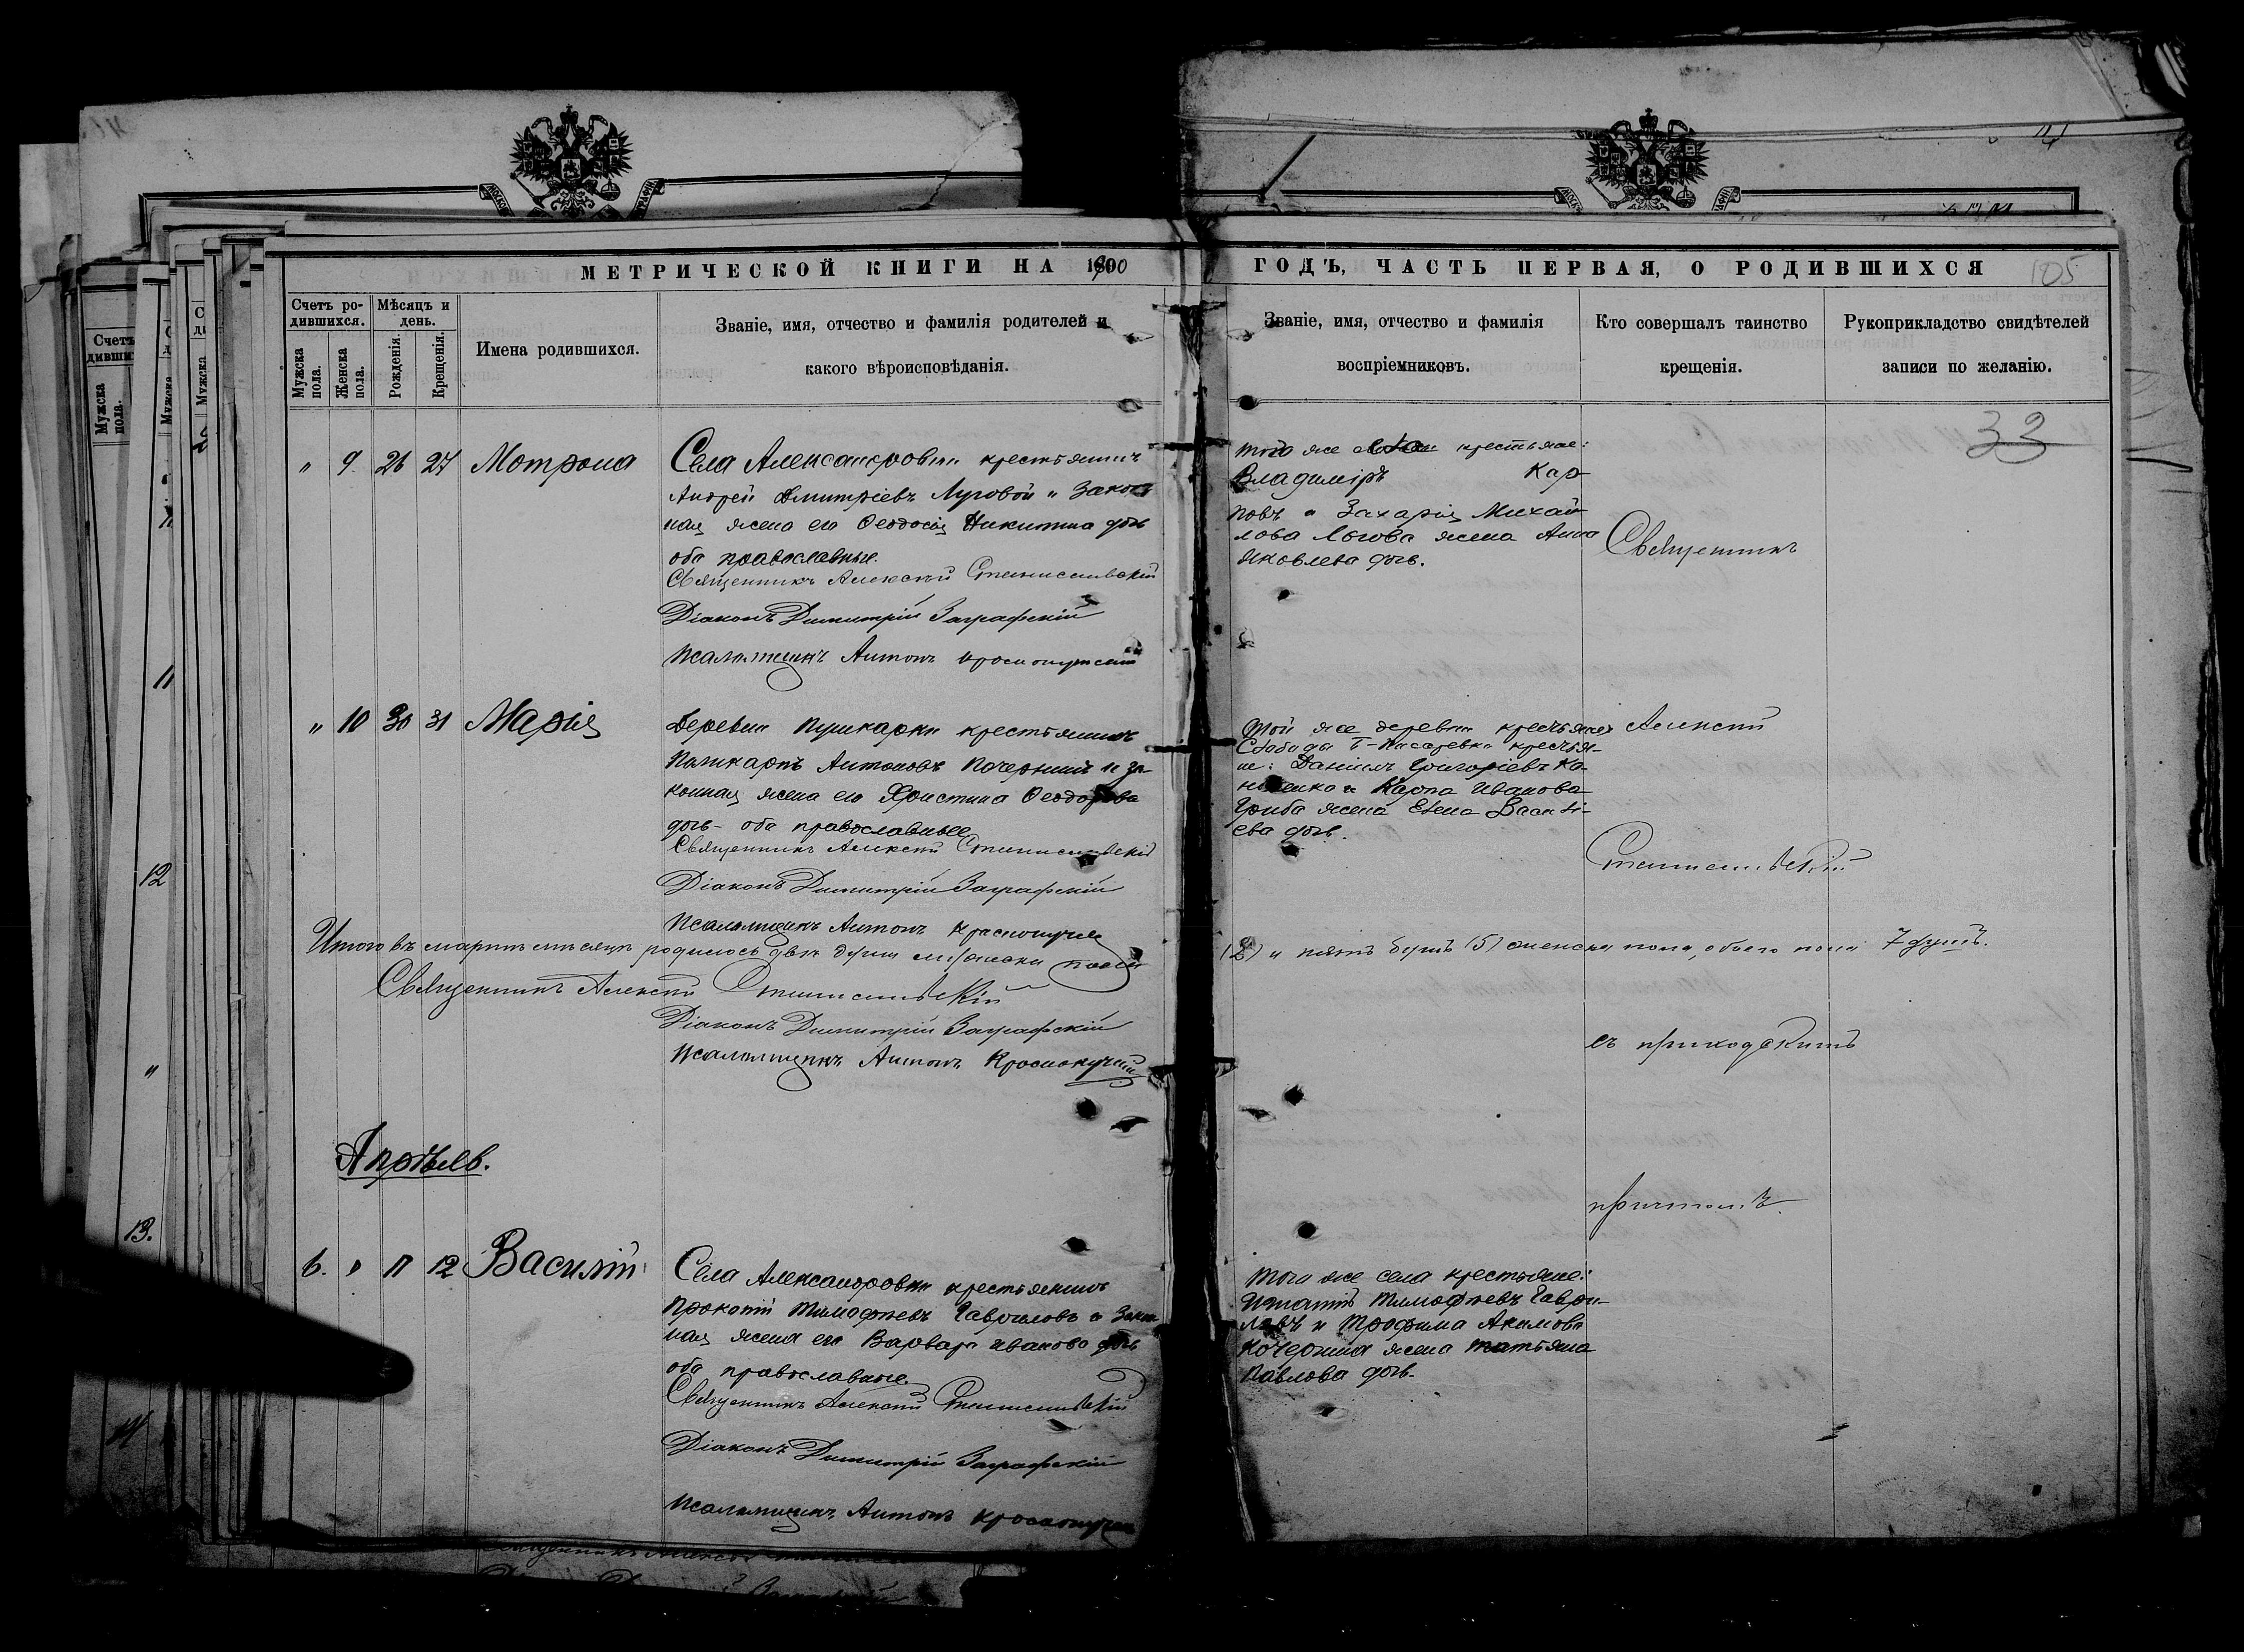 МЕТРИЧЕСКОЙ КНИГИ НА 1900
ГОДЪ, ЧАСТЬ ПЕРВАЯ, О РОДИВШИХСЯ
105
Счетъ родившихся.
Мѣсяцъ и день.
Мужска пола.
Женска пола.
Рожденія.
Крещенія.
Имена родившихся.
Званіе, имя, отчество и фамилія родителей и
какого вѣроисповѣданія.
Званіе, имя, отчество и фамилія
воспріемниковъ.
Кто совершалъ таинство
крещенія.
Рукоприкладство свидѣтелей
записи по желанію.
33
" 9. 26 27 Мотрона
Села Александровки крестьянинъ
Андрей Дмитріевъ Луговой и закон
ная жена его Ѳеодосія Никитина дочь
оба православные.
Священникъ Алексій Станиславскій
Діаконъ Димитрій Заграфскій
Псаломщикъ Антонъ Краснокутскій
того же села крестьяне:
Владиміръ Кар
повъ и Захарія Михай
лова жена Анна
Яковлева дочь.
Священникъ
" 10 30 31 Марія
Деревни Пушкарки крестьянинъ
Поликарпъ Антоновъ и за-
конная жена его Христина Ѳеодорова
дочь - оба православные
Священникъ Алексій Станиславскій
Діаконъ Димитрій Заграфскій
Псаломщикъ Антонъ
той же деревни крестьяне
Слободы крестья-
не: Даніилъ Григоріевъ Ко-
и Карпа Иванова
Гриба жена Елена Василі-
ева дочь.
Алексій
Станиславскій
Итого въ мартѣ мѣсяцѣ родилось двѣ души мужеска пола
(2) и пять душъ (5) женска пола, обоего пола 7 душъ.
Священникъ Алексій Станиславскій
Діаконъ Димитрій Заграфскій
Псаломщикъ Антонъ
съ приходскимъ
Апрѣль.
причтомъ.
6. " 11 12 Василій
Села Александровки крестьянинъ
Прокопій Тимофѣевъ Гавриловъ и закон
ная жена его Варвара Иванова дочь
оба православные.
Священникъ Алексій Станиславскій
Діаконъ Димитрій Заграфскій
Псаломщикъ Антонъ
того же села крестьяне:
Игнатій Тимофѣевъ Гаври-
ловъ и Трофима Акимова
жена Татьяна
Павлова дочь.
12
13.